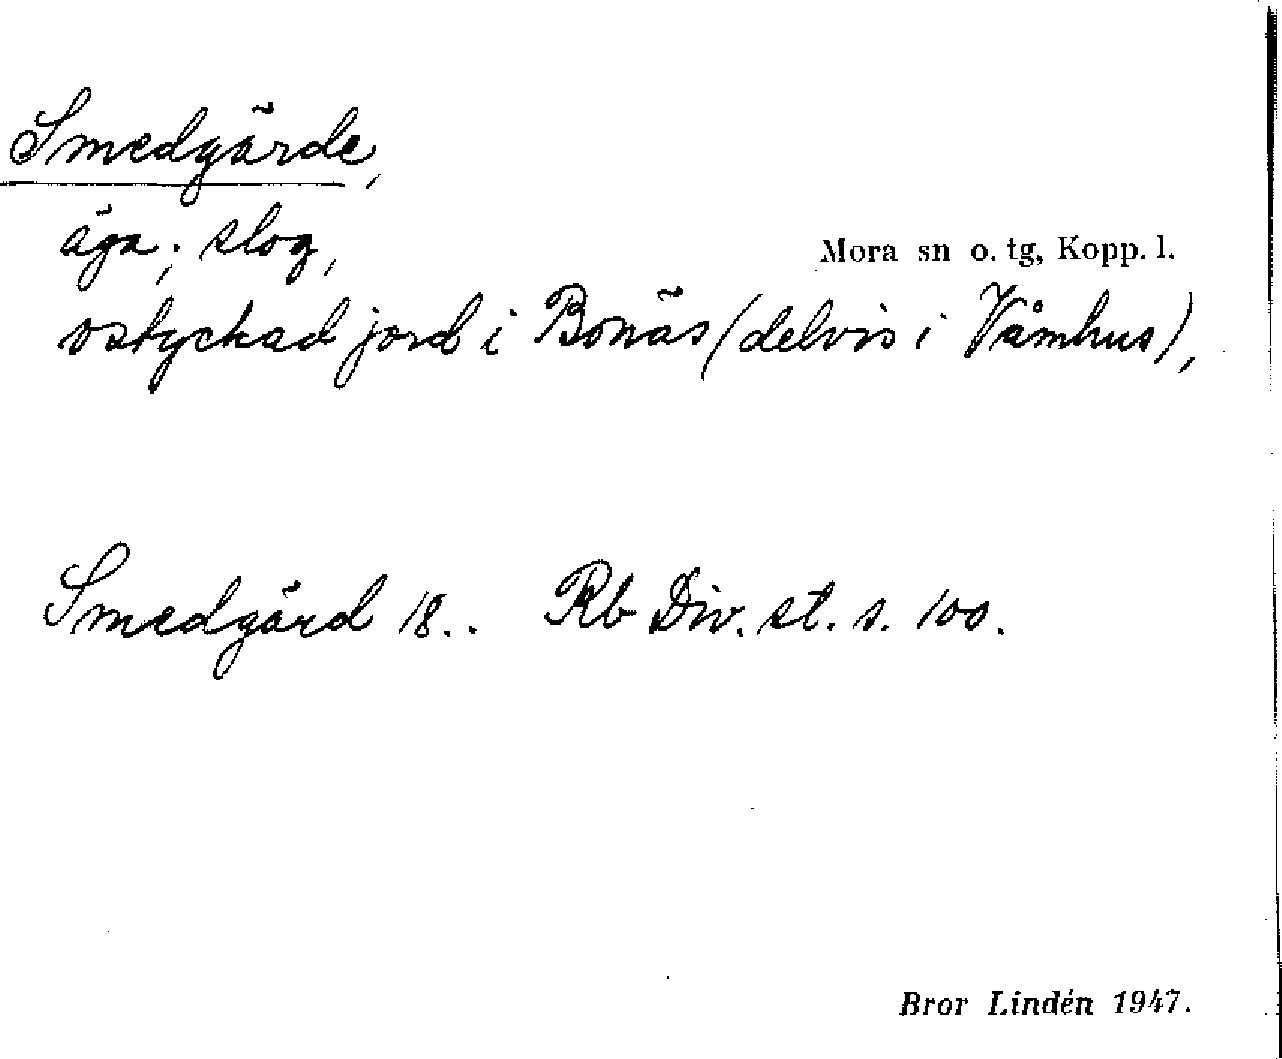 Smedgärde,
äga; slog,
Mora sn o. tg, Kopp. l.
ostyckad jord i Bonäs (delvis i Våmhus),
Smedgärd 18.. Rb Div. st. s. 100.
Bror Lindén 1947.